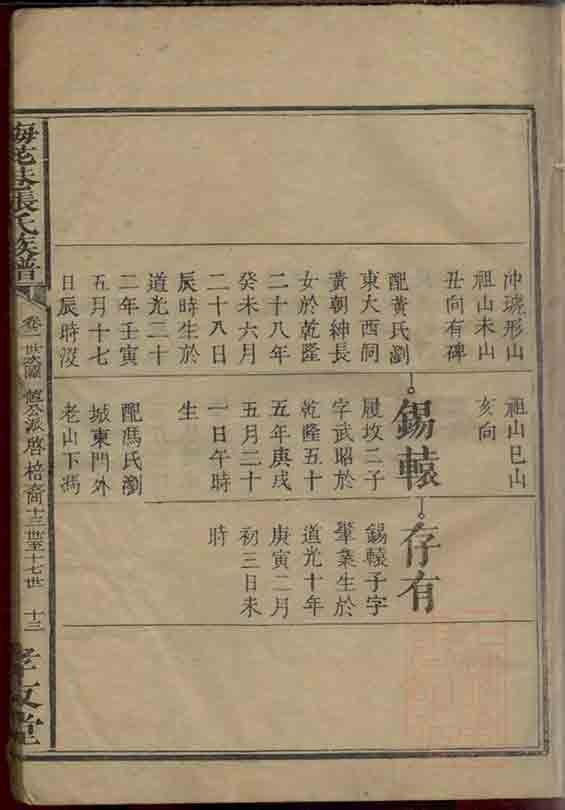 冲琥形山
祖山未山
丑向有碑
配黃氏瀏
東大西祠
黃朝紳長
女於乾隆
二十八年
癸未六月
二十八日
辰時生於
道光二十
二年壬寅
五月十七
日辰時沒
祖山巳山
亥向
錫轅
履坆二子
字武昭於
乾隆五十
五年庚戌
五月二十
一日午時
生
配馮氏瀏
城東門外
老山下馮
存有
錫轅子字
肇業生於
道光十年
庚寅二月
初三日未
時
梅花巷張氏族譜
卷 世次圖 恆公派 啓培裔 十三世至十七世 十三
孝友堂